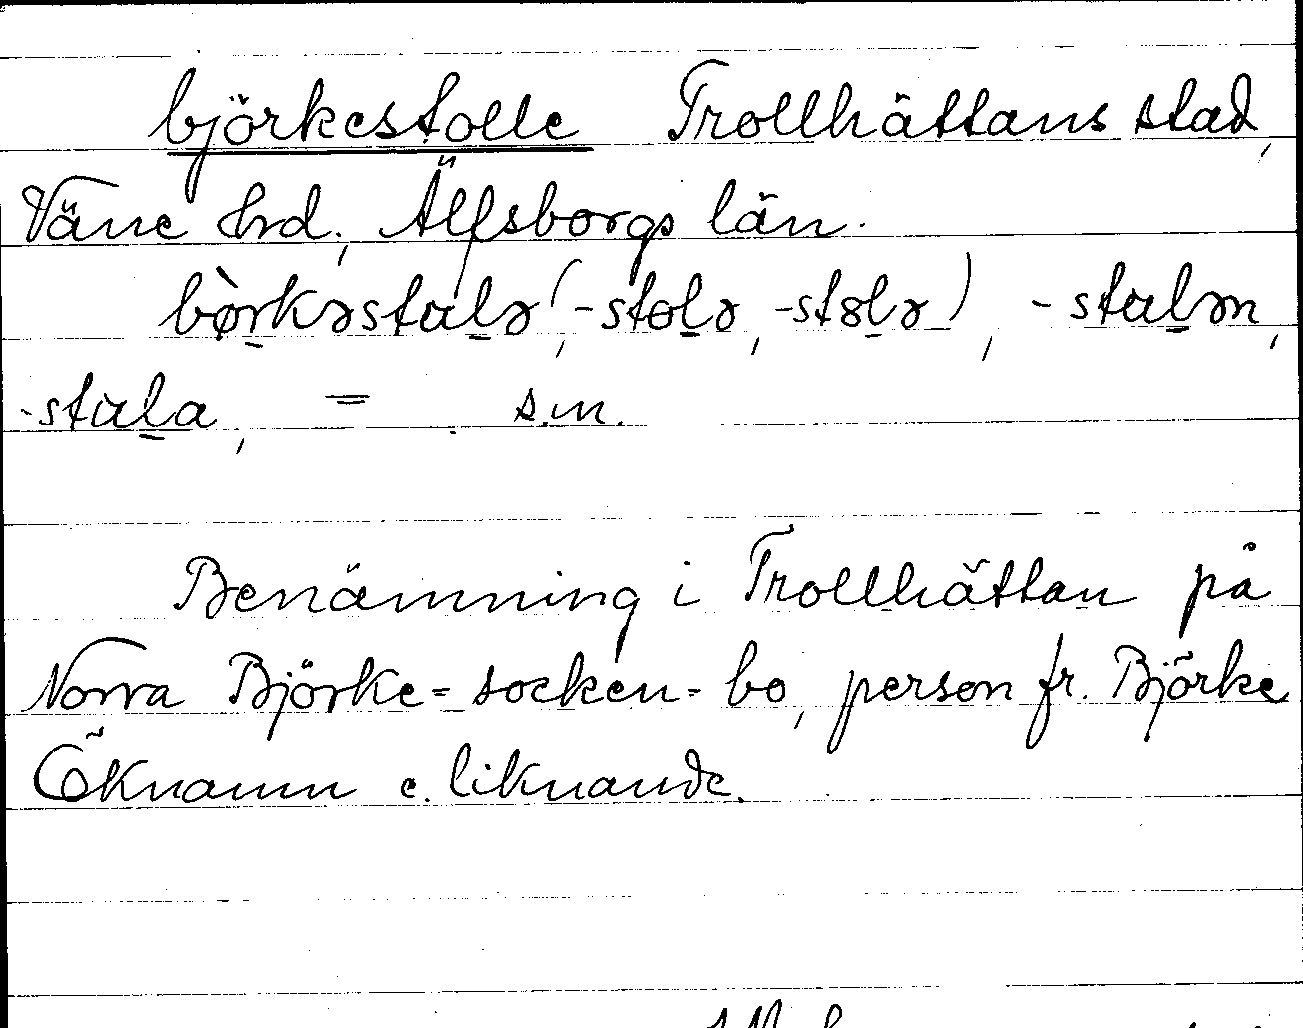 björkestolle Trollhättans stad,
Väne hrd, Älfsborgs län.
bø̀rkəstulə (-stolə, -stɵlə), -stulən,
-stula, = s.m.
Benämning i Trollhättan på
Norra Björke-socken-bo, person fr. Björke
Öknamn e. liknande.